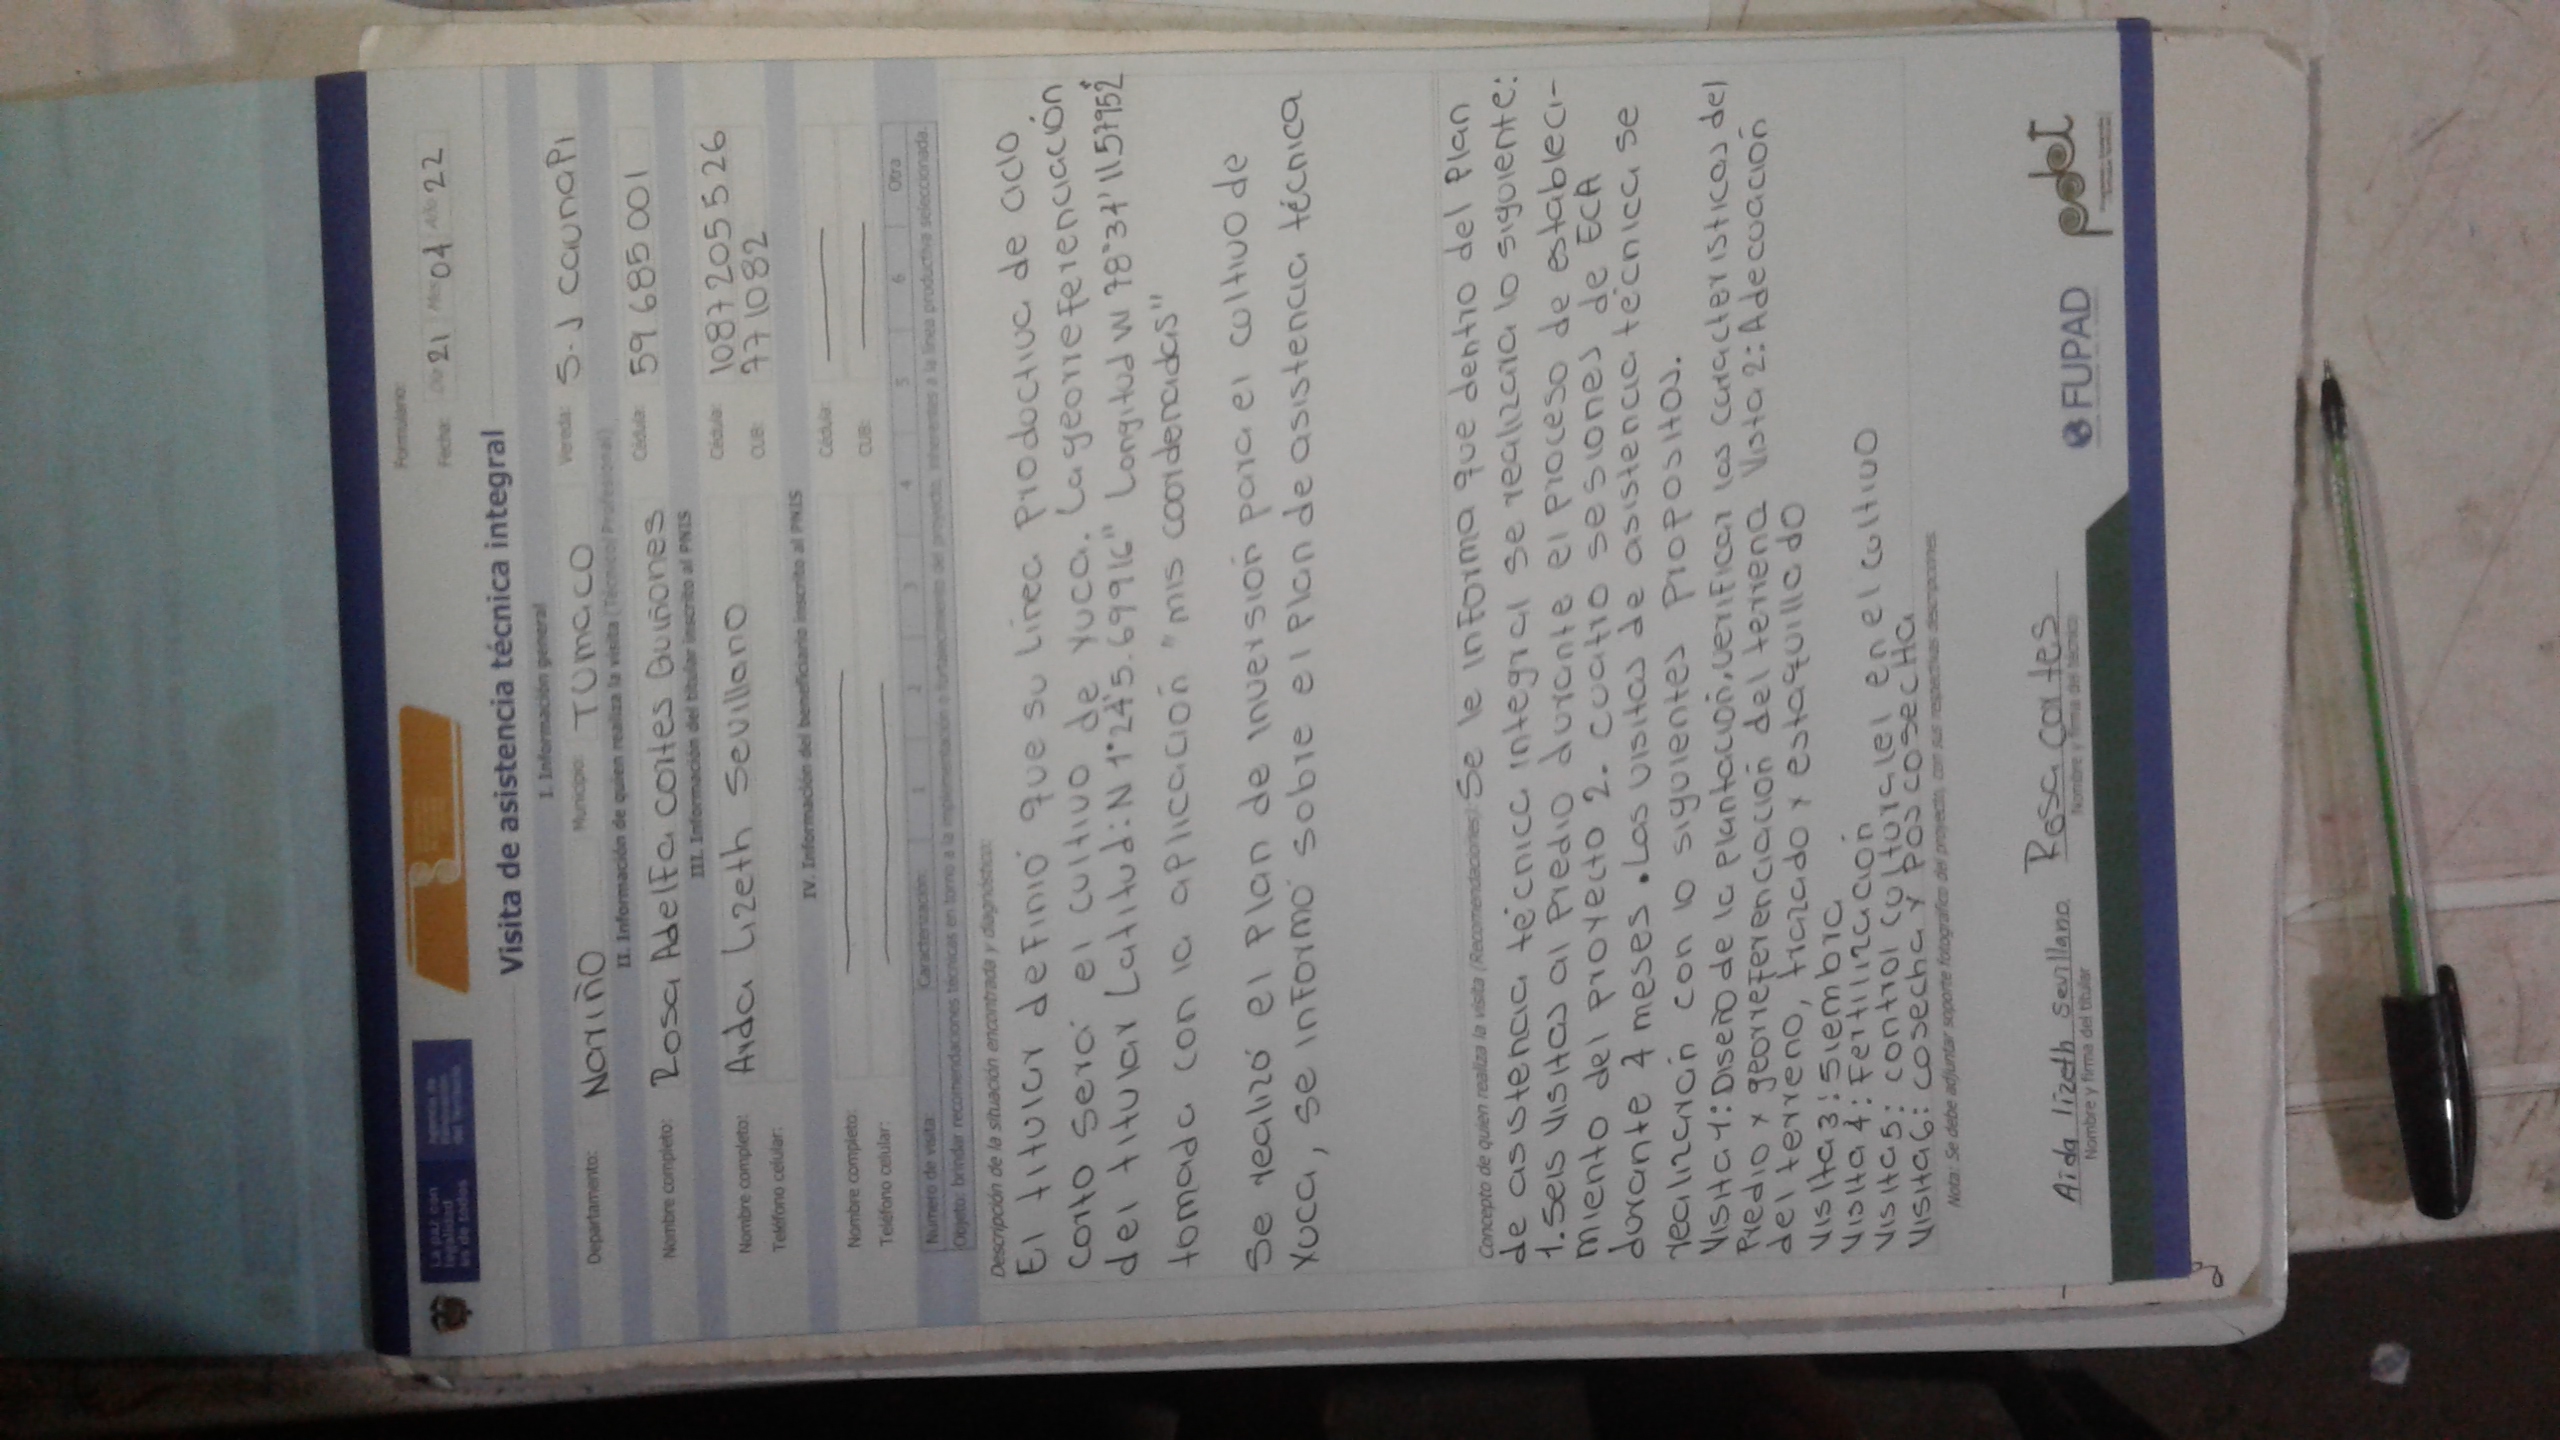 La paz con
legalidad
es de todos
Agencia de
Renovación
del Territorio
Formulario:
Fecha: Día 21 Mes 04 Año 22
Visita de asistencia técnica integral
I. Información general
Departamento: Nariño Municipio: TUMACO Vereda: S.J caunapi
II. Información de quien realiza la visita (Técnico/ Profesional)
Nombre completo: Rosa Adelfa cortes Quiñones Cédula: 59685001
III. Información del titular inscrito al PNIS
Nombre completo: Ayda Lizeth Sevillano Cédula: 1087205526
Teléfono celular: CUB: 771082
IV. Información del beneficiario inscrito al PNIS
Nombre completo: Cédula:
Teléfono celular: CUB:
Numero de visita: Caracterización: 1 2 3 4 5 6 Otra
Objeto: brindar recomendaciones técnicas en torno a la implementación o fortalecimiento del proyecto, inherentes a la línea productiva seleccionada.
Descripción de la situación encontrada y diagnóstico:
El titular definió que su línea productiva de ciclo
corto será el cultivo de yuca. La georreferenciación
del titular Latitud: N 1°24'5.69916" Longitud W 78°34'11.57952"
tomada con la aplicación "mis coordenadas"
Se realizó el plan de inversión para el cultivo de
yuca, se informó sobre el plan de asistencia técnica
Concepto de quien realiza la visita (Recomendaciones): Se le informa que dentro del plan
de asistencia técnica integral se realizara lo siguiente:
1. Seis visitas al predio durante el proceso de estableci-
miento del proyecto 2. cuatro sesiones de ECA
durante 4 meses. Las visitas de asistencia técnica se
realizarán con lo siguientes propositos.
Visita 1: Diseño de la plantación, verificar las caracteristicas del
predio y georreferenciación del terreno Vista 2: Adecuación
del terreno, trazado y estaquillado
Visita 3: Siembra
Visita 4: Fertilización
Visita 5: control culturales en el cultivo
Visita 6: cosecha y poscosecha
Nota: Se debe adjuntar soporte fotográfico del proyecto, con sus respectivas descripciones.
Aida lizeth sevillano Rosa cortes
Nombre y firma del titular Nombre y firma del técnico
FUPAD pdet